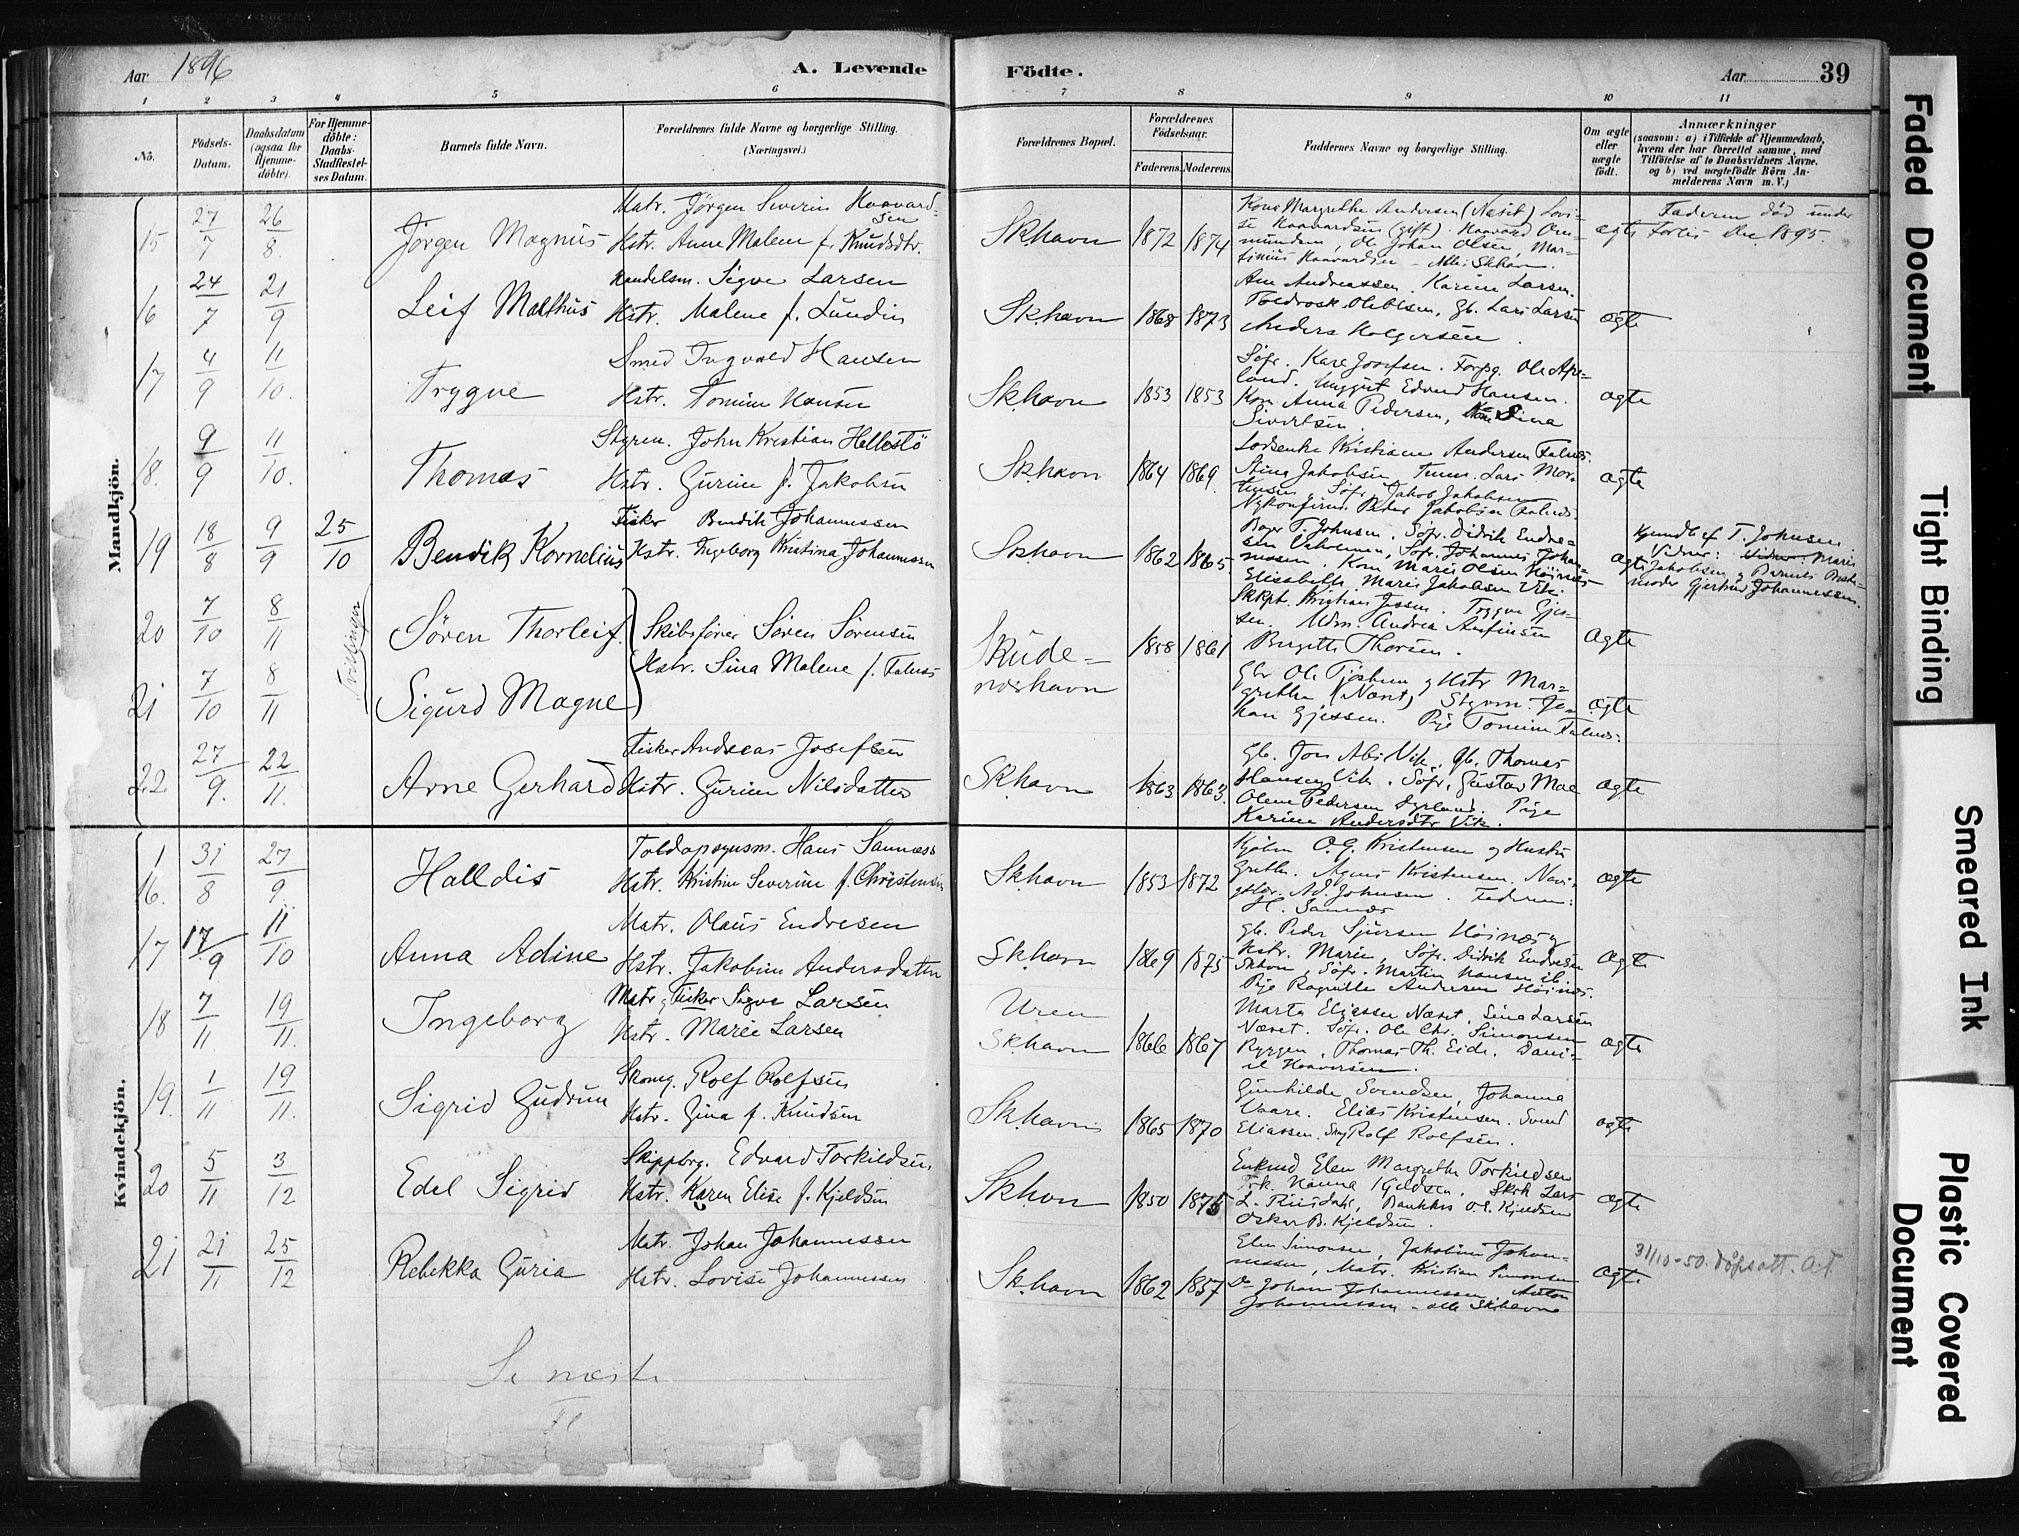 Aar 1896
A. Levende
Födte.
Aar
39
1 2 3 4 5 6 7 8 9 10 11
No.
Födsels-
Datum.
Daabsdatum
(ogsaa for
Hjemme-
döbte).
For Hjemme-
döbte:
Daabs-
Stadfæstel-
ses Datum.
Barnets fulde Navn.
Forældrenes fulde Navne og borgerlige Stilling.
(Næringsvei.)
Forældrenes Bopæl.
Forældrenes
Födselsaar.
Faderens. Moderens.
Faddernes Navne og borgerlige Stilling.
Om ægte
eller
uægte
födt.
Anmærkninger
(saasom: a) i Tilfælde af Hjemmedaab,
hvem der har forrettet samme, med
Tilföielse af to Daabsvidners Navne.
og b) ved uægtefödte Börn An-
melderens Navn m. V.)
Mandkjön.
15 27/7 26/8 Jörgen Magnus
Matr. Jörgen Severin Haavard-
sen
Hstr. Anne Malene f. Knudsdtr.
Sk.havn 1872 1874
Kone Margrethe Andersen (Næset) Lovi-
se Haavardsen (gift). Haavard
Ole Johan Olsen Mar-
tinius Haavardsen - Alle: Skhavn.
ægte
Faderen död under
Forlis Dec. 1895.
16 24/7 21/9 Leif Malthus
Handelsm. Sigve Larsen
Hstr. Malene f. Lundin
Sk.havn 1868 1873
Ane Andreassen. Karine Larsen.
Ole Olsen, Gb. Lars Larsen
Anders Holgersen.
ægte
17 4/9 11/10 Trygve
Smed Ingvald Hansen
Hstr. Tomine Hansen
Sk.havn 1853 1853
Söfr. Kare Josefsen. Forpg. Ole Ape-
land. Unggut Edvard Hansen.
Kone Anna Pedersen, Kone Sina
Sivertsen.
ægte
18. 9/9 11/10. Thomas
Styrm. John Kristian Hellestö
Hstr. Gurine f. Jakobsen
Sk.havn 1864 1869.
Lodsenke Kristiane Andersen Falnes.
Stina Jakobsen Tömm. Lars Mor-
tensen, Söfr. Jakob Jakobsen
Nykonfirm. Peder Jakobsen Falnes.
ægte
19 18/8 9/9 25/10 Bendik Kornelius
Fisker Bendik Johannessen
Hstr. Ingeborg Kristina Johannessen
Sk.havn 1862 1865.
T. Johnsen. Söfr. Didrik Endre-
sen Söfr. Johannes Johan-
nessen. Kone Marie Olsen Höinæs
Elisabeth Marie Jakobsen Vik.
ægte
Hjemdb. af T. Johnsen
Vidner: Marie
Jakobsen og Barnets Beste-
moder Gjertrud Johannessen.
Tvillinger
20 7/10 8/11 Sören Thorleif.
Skibsförer Sören Sörensen
Hstr. Sina Malene f. Falnes
Skude-
neshavn
1858 1861
Skkpt. Kristian Jessen. Trygve Gjes-
sen. Mdm. Andrea Anfinsen
Birgitte Thorsen.
ægte
21 7/10 8/11 Sigurd Magne
Gbr Ole Tjösheim og Hstr Mar-
grethe (Næset) Styrm. Jo-
han Gjessen. Pige Tomine Falnes.
ægte
22 27/9. 22/11. Arne Gerhard
Fisker Andreas Josefsen
Hstr. Gurine Nilsdatter
Sk.havn 1863 1863.
Gb. Jon Abr. Vik. Gb. Thomas
Hansen Vik. Söfr. Gustav Moe
Olene Pedersen Syrland. Pige
Karine Andersdtr Vik.
ægte
Kvindekjön.
1
16. 31/8 27/9. Halldis
Toldopsynsm. Hans Sannæss
Hstr. Kristine Severine f. Christensen
Sk.havn 1853 1872
Kjöbm. O. G. Kristensen og Hustru
Grethe. Agnes Kristensen. Navi-
gtlær. Ad. Johnsen. Faderen:
H. Sannæs
ægte
17 17/9 11/10 Anna Adine
Matr. Olaus Endresen
Hstr. Jakobine Andersdatter
Sk.havn 1869 1875
Gb. Peder Sjursen Höinæs og
Hstr. Marie, Söfr. Didrik Endresen
Skhavn, Söfr. Martin Hansen ib.
Pige Ragnilde Andersen Höinæs.
ægte
18 7/11 19/11. Ingeborg
Matr. og Fisker Sigve Larsen
Hstr. Marie Larsen
Uren
Sk.havn 1866 1867
Marta Eliassen Næset, Sina Larsen
Næset. Söfr. Ole Chr. Simonsen
Ryggen, Thomas Th. Eide. Dani-
el Haavorsen.
ægte
19. 1/11 19/11. Sigrid Gudrun
Skomg. Rolf Rolfsen
Hstr. Gina f. Knudsen
Sk.havn 1865 1870
Gunhilde Svendsen, Johanna
Vaare. Elias Kristensen. Svend
Eliassen. Rolf Rolfsen.
ægte
20 5/11 3/12 Edel Sigrid
Skippbrg. Edvard Torkildsen
Hstr. Karen Elise f. Kjeldsen
Sk.havn 1850 1875
Enkmd Elen Margrethe Torkildsen
Frk. Hanna Kjeldsen, Lars
Bankkas. O. C. Kjeldsen
Oskar B. Kjeldsen.
ægte
21 21/11 25/12 Rebekka Guria
Matr. Johan Johannessen
Hstr. Lovise Johannessen
Sk.havn 1862 1857
Elen Simonsen, Jakobine Johan-
nessen, Matr. Kristian Simonsen
Do Johan Johannessen Anton
Johannessen - alle Sk.havn
ægte
31/10-50. döpsatt. A.T.
Se næste
Faded Document
Tight Binding
Smeared Ink
Plastic Covered
Document